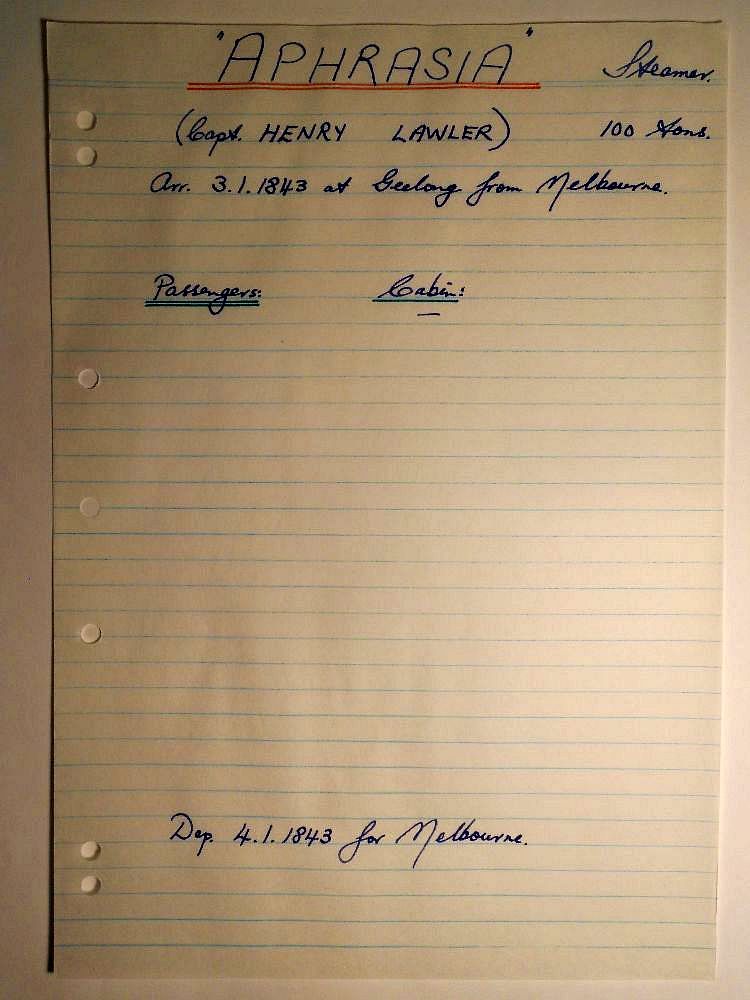 "APHRASIA" Steamer.
(Capt. HENRY LAWLER) 100 tons.
Arr. 3.1.1843 at Geelong from Melbourne.
Passengers: Cabin:
—
Dep. 4.1.1843 for Melbourne.